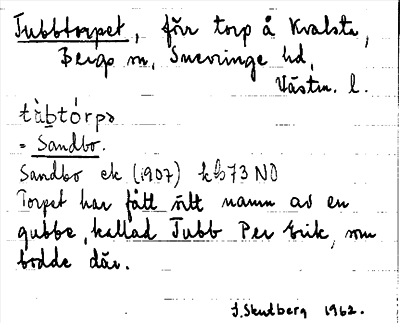 Tubbtorpet, förr torp å Kvalsta,
Bergs sn, Snevringe hd,
Västm. l.
tùbtórpə
= Sandbo.
Sandbo ek (1907) kb 73 NO
Torpet har fått sitt namn av en
gubbe, kallad Tubb Per Erik, som
bodde där.
J. Skutberg 1962.